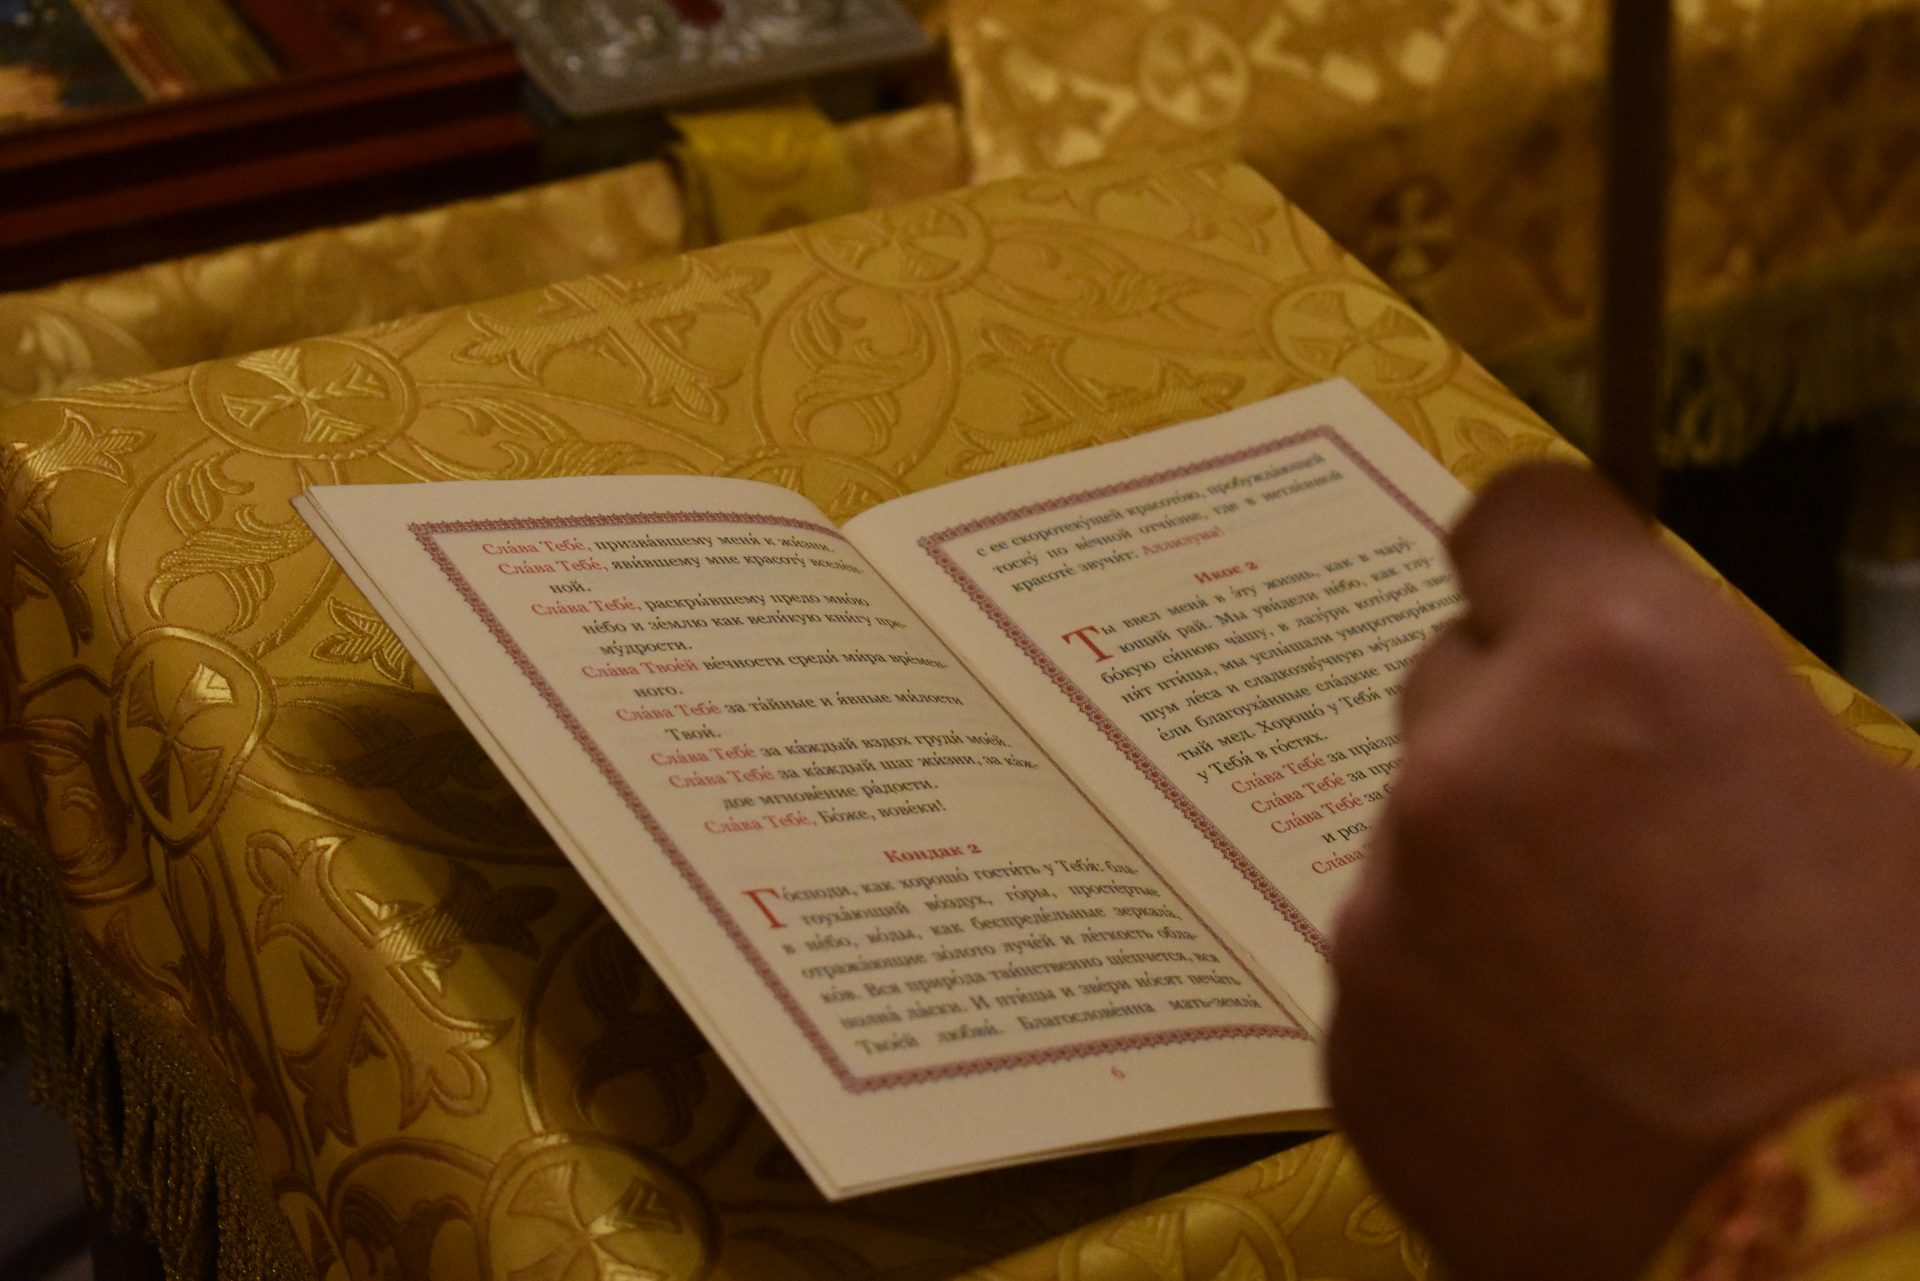 Сла́ва Тебе́, призва́вшему меня́ к жи́зни.
Сла́ва Тебе́, яви́вшему мне красоту́ вселе́н-
ной.
Сла́ва Тебе́, раскры́вшему предо мно́ю
не́бо и зе́млю как вели́кую кни́гу пре-
му́дрости.
Сла́ва Твое́й ве́чности среди́ ми́ра вре́мен-
ного.
Сла́ва Тебе́ за та́йные и я́вные ми́лости
Твои́.
Сла́ва Тебе́ за ка́ждый вздох груди́ мое́й.
Сла́ва Тебе́ за ка́ждый шаг жи́зни, за ка́ж-
дое мгнове́ние ра́дости.
Сла́ва Тебе́, Бо́же, вове́ки!
Кондак 2
Го́споди, как хорошо́ гости́ть у Тебя́: бла-
гоуха́ющий во́здух, го́ры, простёртые
в не́бо, во́ды, как беспреде́льные зеркала́,
отража́ющие зо́лото луче́й и лёгкость обла-
ко́в. Вся приро́да таи́нственно ше́пчется, вся
полна́ ла́ски. И пти́цы и зве́ри но́сят печа́ть
Твое́й любви́. Благослове́нна мать-земля́
6
с ее скоротеку́щей красото́ю, пробужда́ющей
тоску́ по ве́чной отчи́зне, где в нетле́нной
красоте́ звучи́т: Аллилуиа!
Икос 2
Ты ввел меня́ в э́ту жизнь, как в чару́-
ющий рай. Мы уви́дели не́бо, как глу-
бо́кую си́нюю ча́шу, в лазу́ри кото́рой зве-
ня́т пти́цы, мы услы́шали умиротворя́ющий
шум ле́са и сладкозву́чную му́зыку
е́ли благоуха́нные сла́дкие
тый мед. Хорошо́ у Тебя́ на
у Тебя́ в гостя́х.
Сла́ва Тебе́ за
Сла́ва Тебе́ за
Сла́ва Тебе́ за
и роз.
Сла́ва